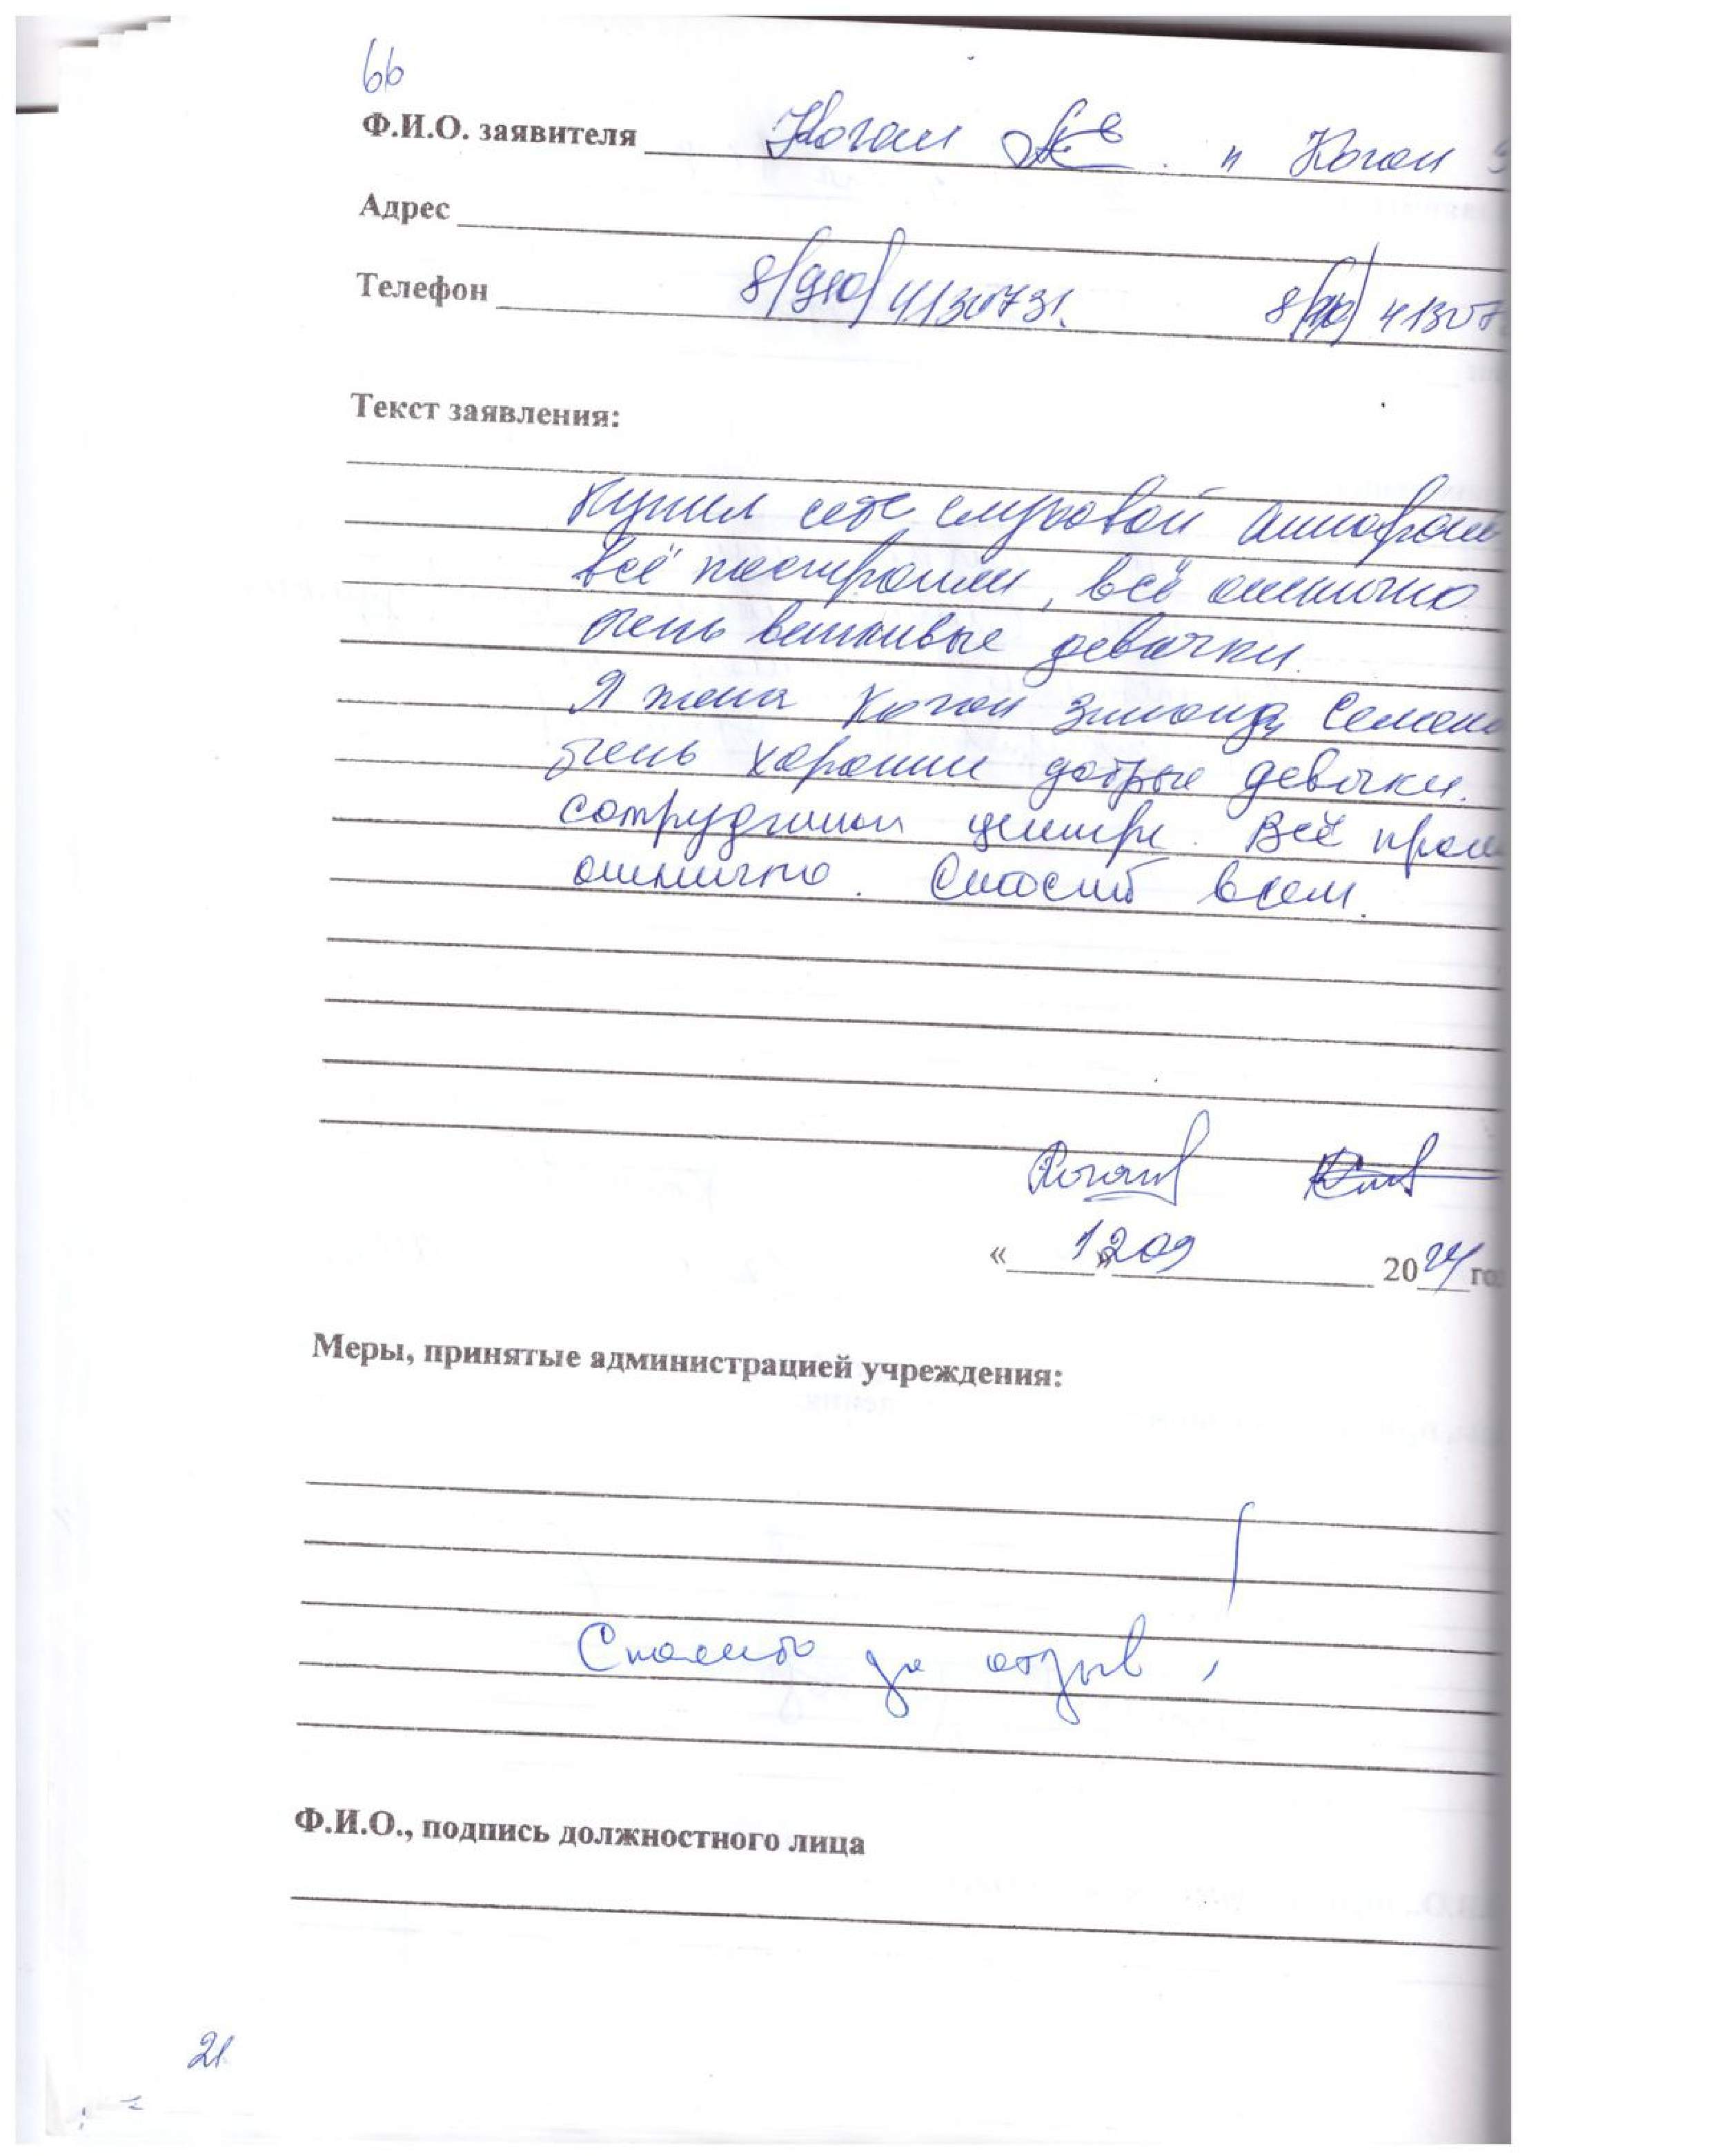 66
Ф.И.О. заявителя Коган и Коган
Адрес
Телефон 8(910)4130731. 8(910) 41307
Текст заявления:
Купил себе слуховой аппарат
всё настроили, всё отлично
очень вежливые девочки.
Я жена Коган Зинаида Семено
очень хорошие добрые девочки.
сотрудники центра. Всё прош
отлично. Спасибо всем.
Коган
« 12 » 09 2024 го
Меры, принятые администрацией учреждения:
Спасибо за отзыв!
Ф.И.О., подпись должностного лица
21